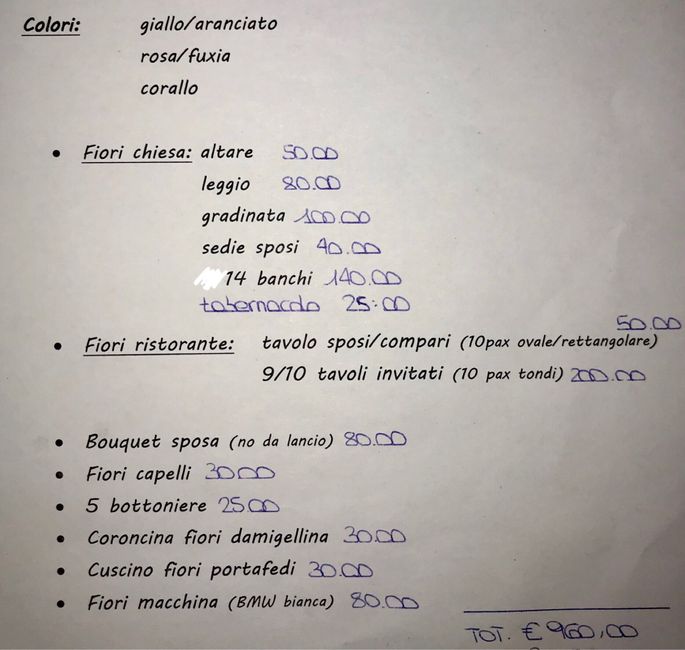 Colori: giallo/aranciato
rosa/fuxia
corallo
• Fiori chiesa: altare 50.00
leggio 80.00
gradinata 100.00
sedie sposi 40.00
14 banchi 140.00
tabernacolo 25:00
50.00
• Fiori ristorante: tavolo sposi/compari (10pax ovale/rettangolare)
9/10 tavoli invitati (10 pax tondi) 200.00
• Bouquet sposa (no da lancio) 80.00
• Fiori capelli 30.00
• 5 bottoniere 25.00
• Coroncina fiori damigellina 30.00
• Cuscino fiori portafedi 30.00
• Fiori macchina (BMW bianca) 80.00
TOT. € 960,00